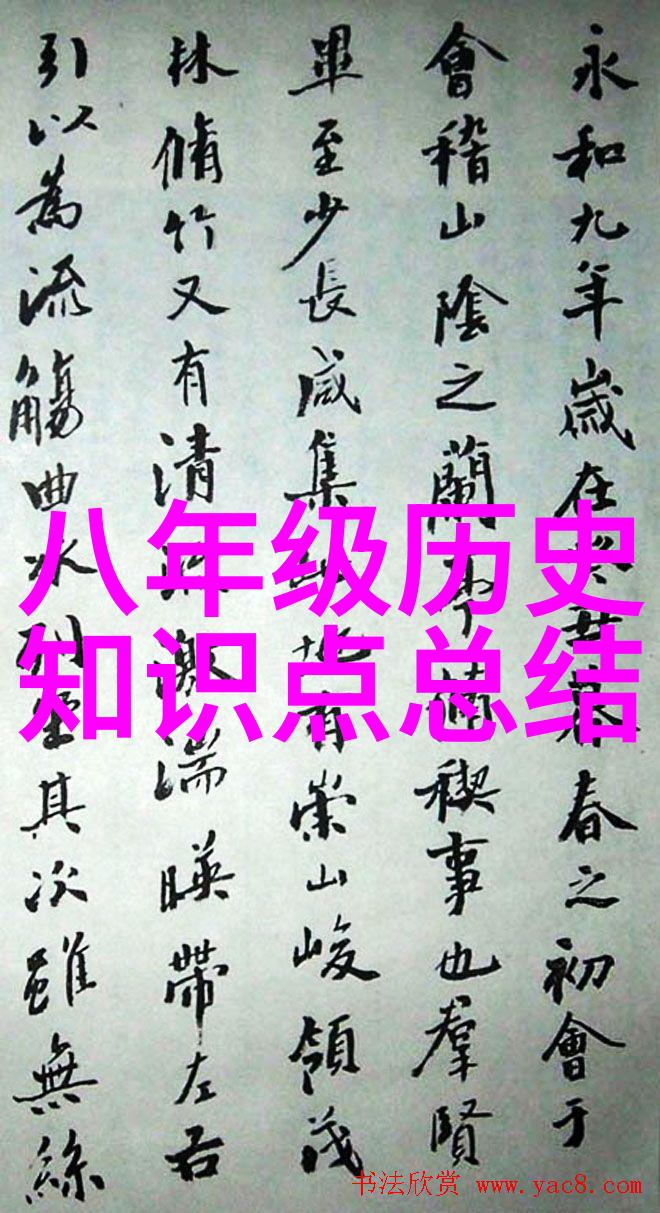 永和九年歲在癸丑暮春之初會于
會稽山陰之蘭亭脩禊事也羣賢
畢至少長咸集此地有崇山峻領茂
林脩竹又有清流激湍暎帶左右
引以為流觴曲水列坐其次雖無絲
八年级历史
知识点总结
书法欣赏 www.yac8.com